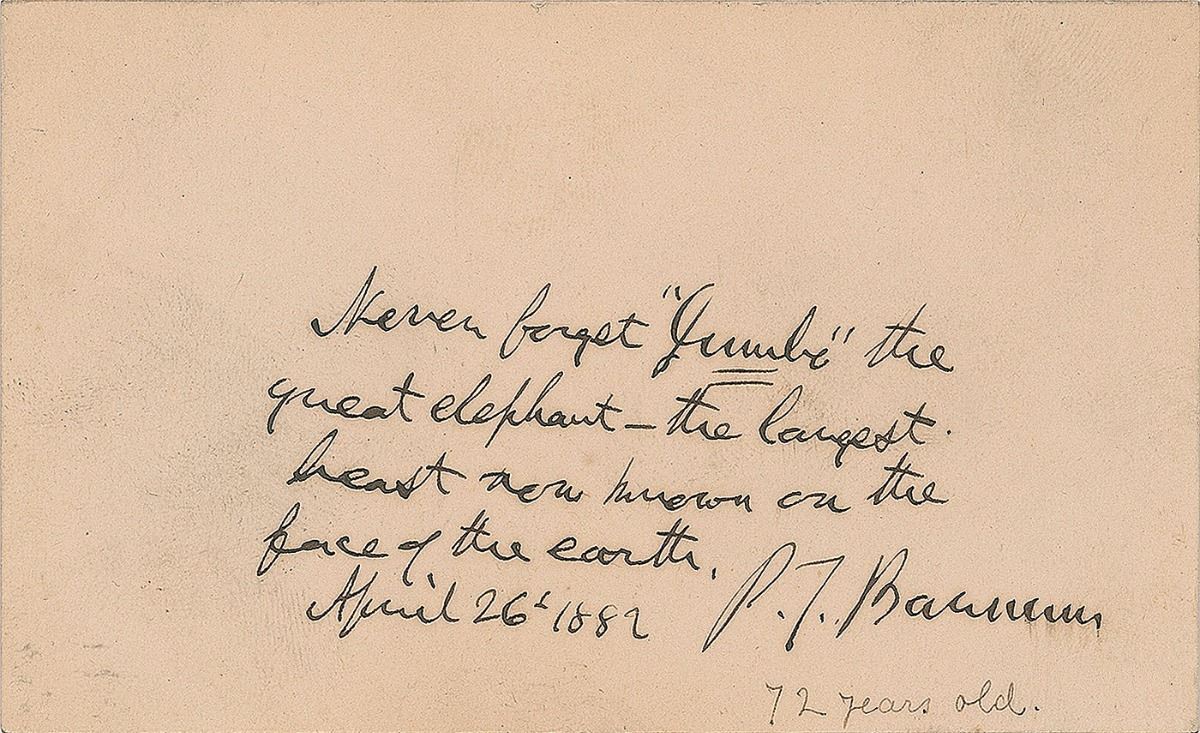 Never forget "Jumbo" the
great elephant — the largest
beast now known on the
face of the earth.
April 26ᵗ 1882 P. T. Barnum
72 years old.